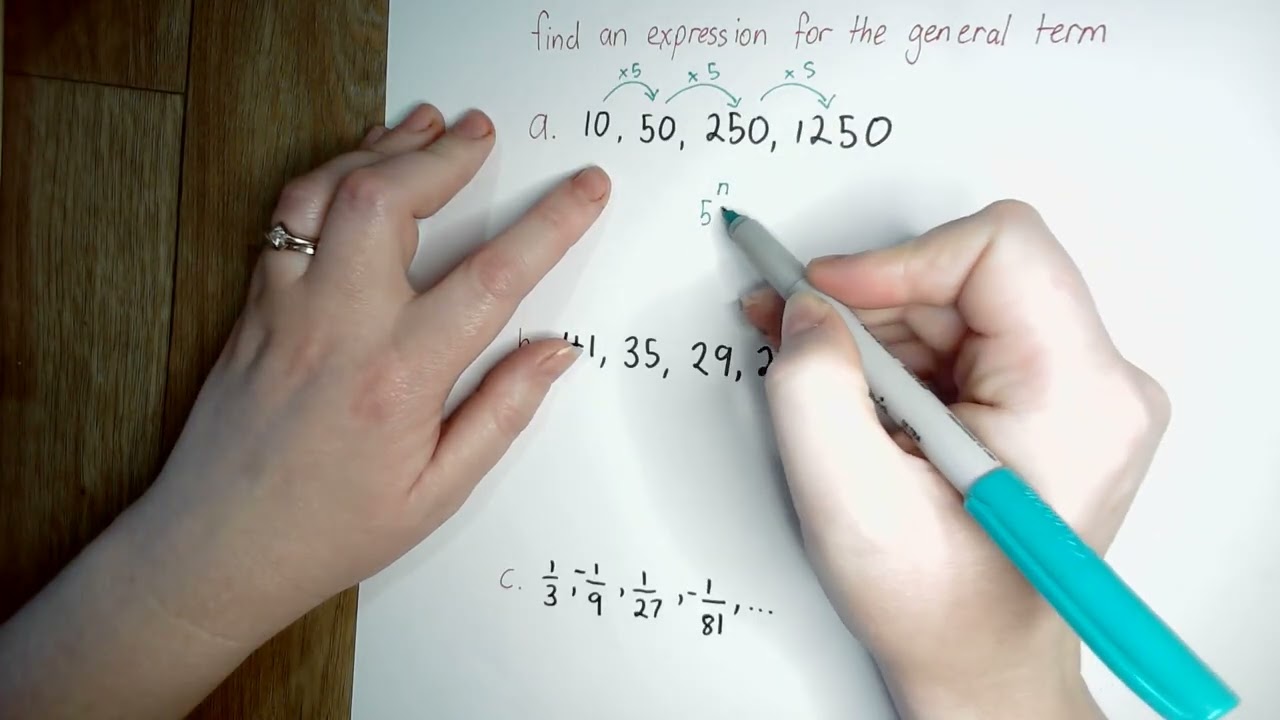 find an expression for the general term
×5 ×5 ×5
a. 10, 50, 250, 1250
5ⁿ
41, 35, 29,
c. 1/3, -1/9, 1/27, -1/81, ...